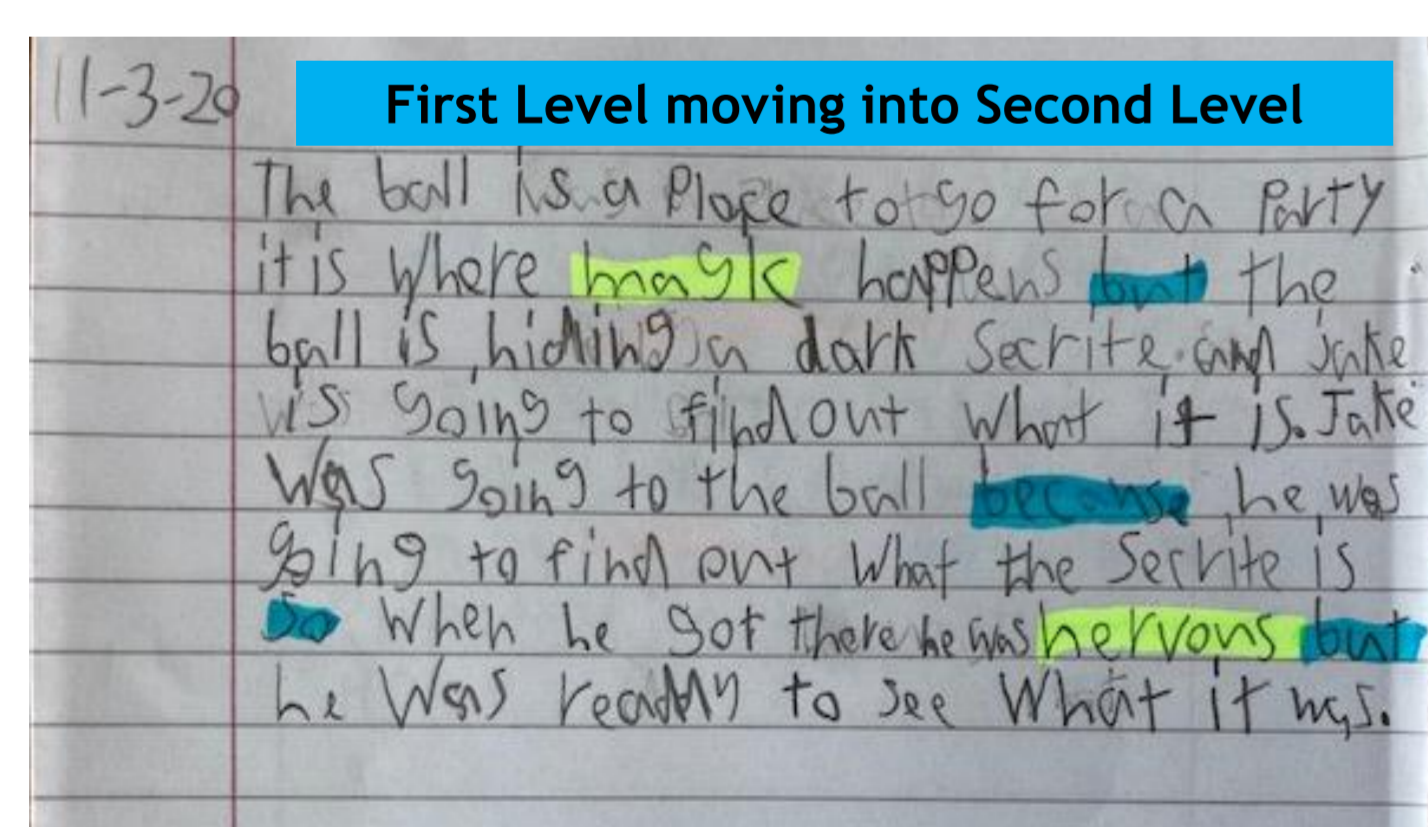 11-3-20
First Level moving into Second Level
The ball is a Place to go for a Party
it is where magk happens but the
ball is hiding a dark Secrite. and jake
is going to find out what it is. Jake
was going to the ball because he was
going to find out what the Secrite is
So when he got there he was nervous but
he was ready to see what it was.